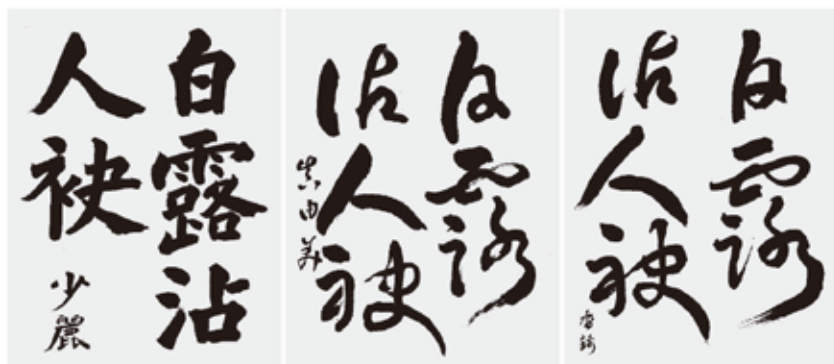 白露沾
人袂
少麗
白露
沾人袂
真由美
白露
沾人袂